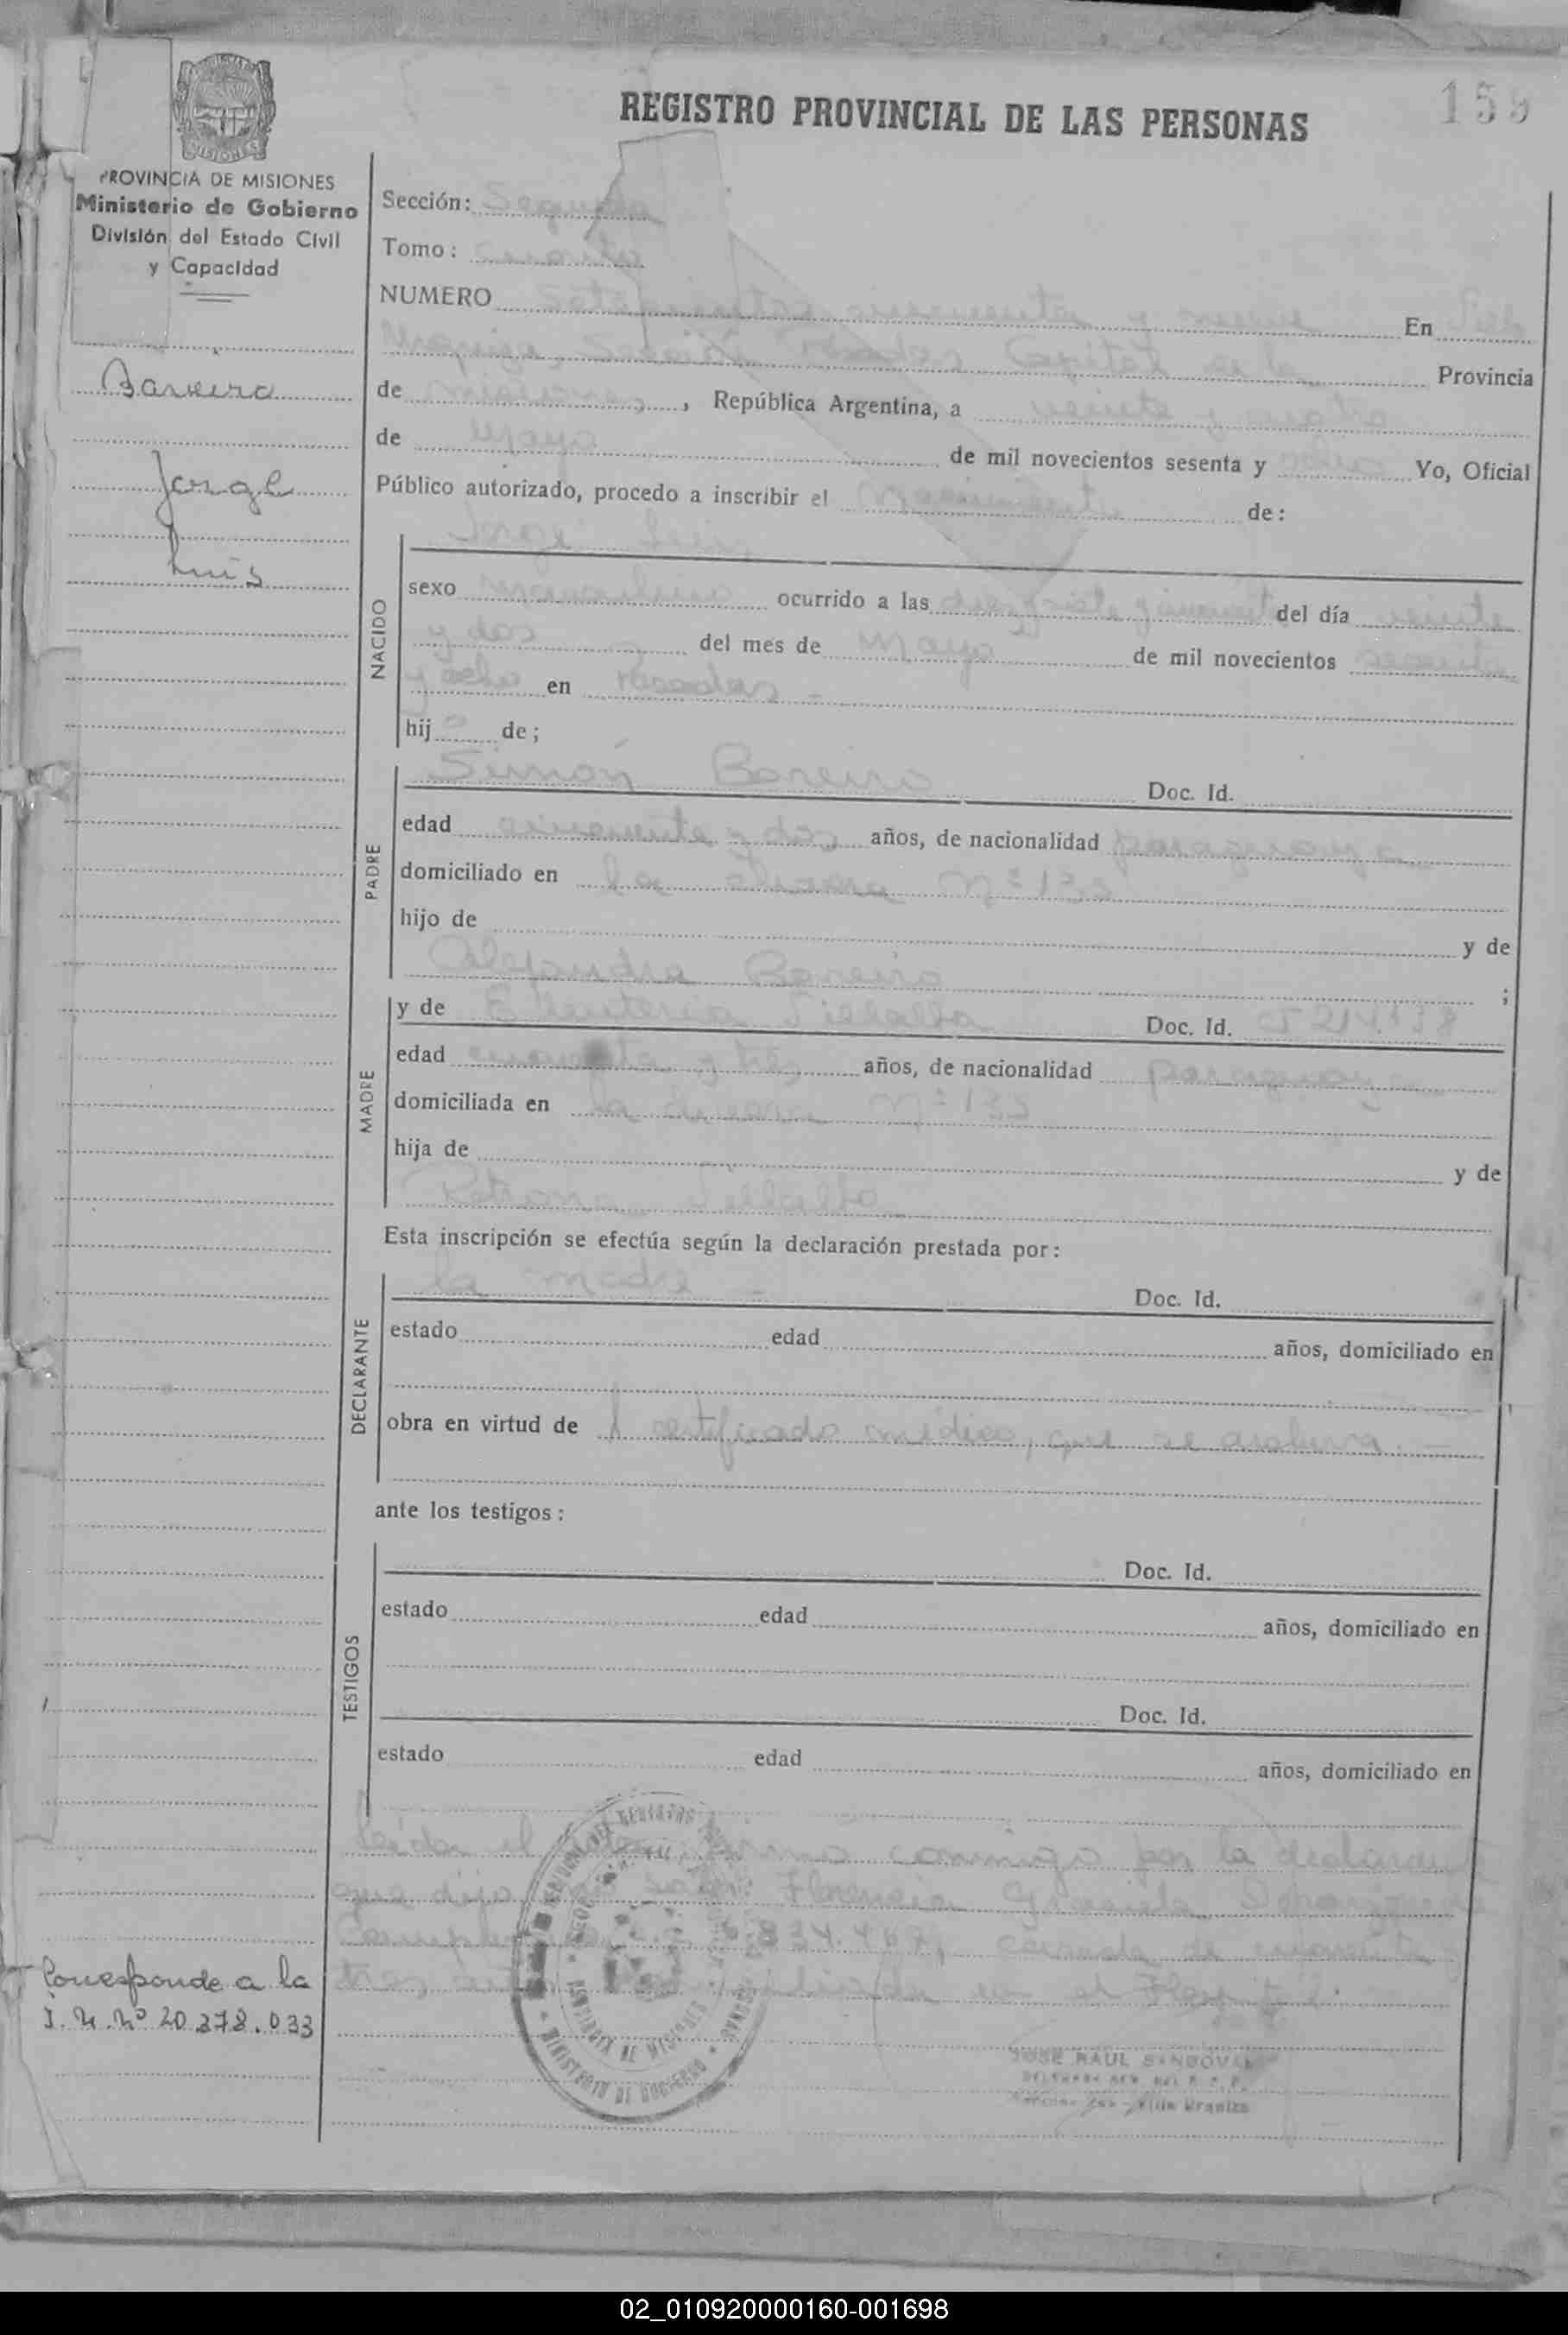 REGISTRO PROVINCIAL DE LAS PERSONAS
159
MISIONES
PROVINCIA DE MISIONES
Ministerio de Gobierno
División del Estado Civil
y Capacidad
Barreiro
Jorge
Luis
Sección: Segunda
Tomo: Cuarto
NUMERO Setecientos cincuenta y nueve En Vill
Urquiza, Sección Posadas Capital de la Provincia
de Misiones, República Argentina, a veinte y cuatro
de Mayo de mil novecientos sesenta y ocho Yo, Oficial
Público autorizado, procedo a inscribir el Nacimiento de:
Jorge Luis
NACIDO
sexo masculino ocurrido a las del día veinte
y dos del mes de Mayo de mil novecientos sesenta
y ocho en Posadas -
hijo de;
PADRE
Simón Bareiro Doc. Id.
edad cincuenta y dos años, de nacionalidad paraguaya
domiciliado en la Nº 132
hijo de y de
Alejandra Bareiro ;
MADRE
y de Eleuteria Villalba Doc. Id. 214.138
edad cuarenta y tres años, de nacionalidad paraguaya
domiciliada en la Nº 132
hija de y de
Petrona Villalba
Esta inscripción se efectúa según la declaración prestada por:
DECLARANTE
la madre - Doc. Id.
estado edad años, domiciliado en
obra en virtud de certificado médico, que se archiva. -
ante los testigos:
TESTIGOS
Doc. Id.
estado edad años, domiciliado en
Doc. Id.
estado edad años, domiciliado en
Leída el firma conmigo por la declarante
que dijo Florencia Graciela
casada de cuarenta y
tres domiciliada en el
Corresponde a la
I. N. Nº 20.378.033
MINISTERIO DE GOBIERNO
PROVINCIA DE MISIONES
JOSE RAUL SANDOVAL
Villa Urquiza
02_010920000160-001698